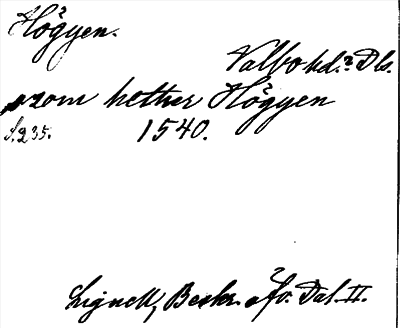 Högyen.
Valbohd.? Dls.
som hether Högyen
S. 235. 1540.
Lignell, Beskr. öfv. Dal. II.